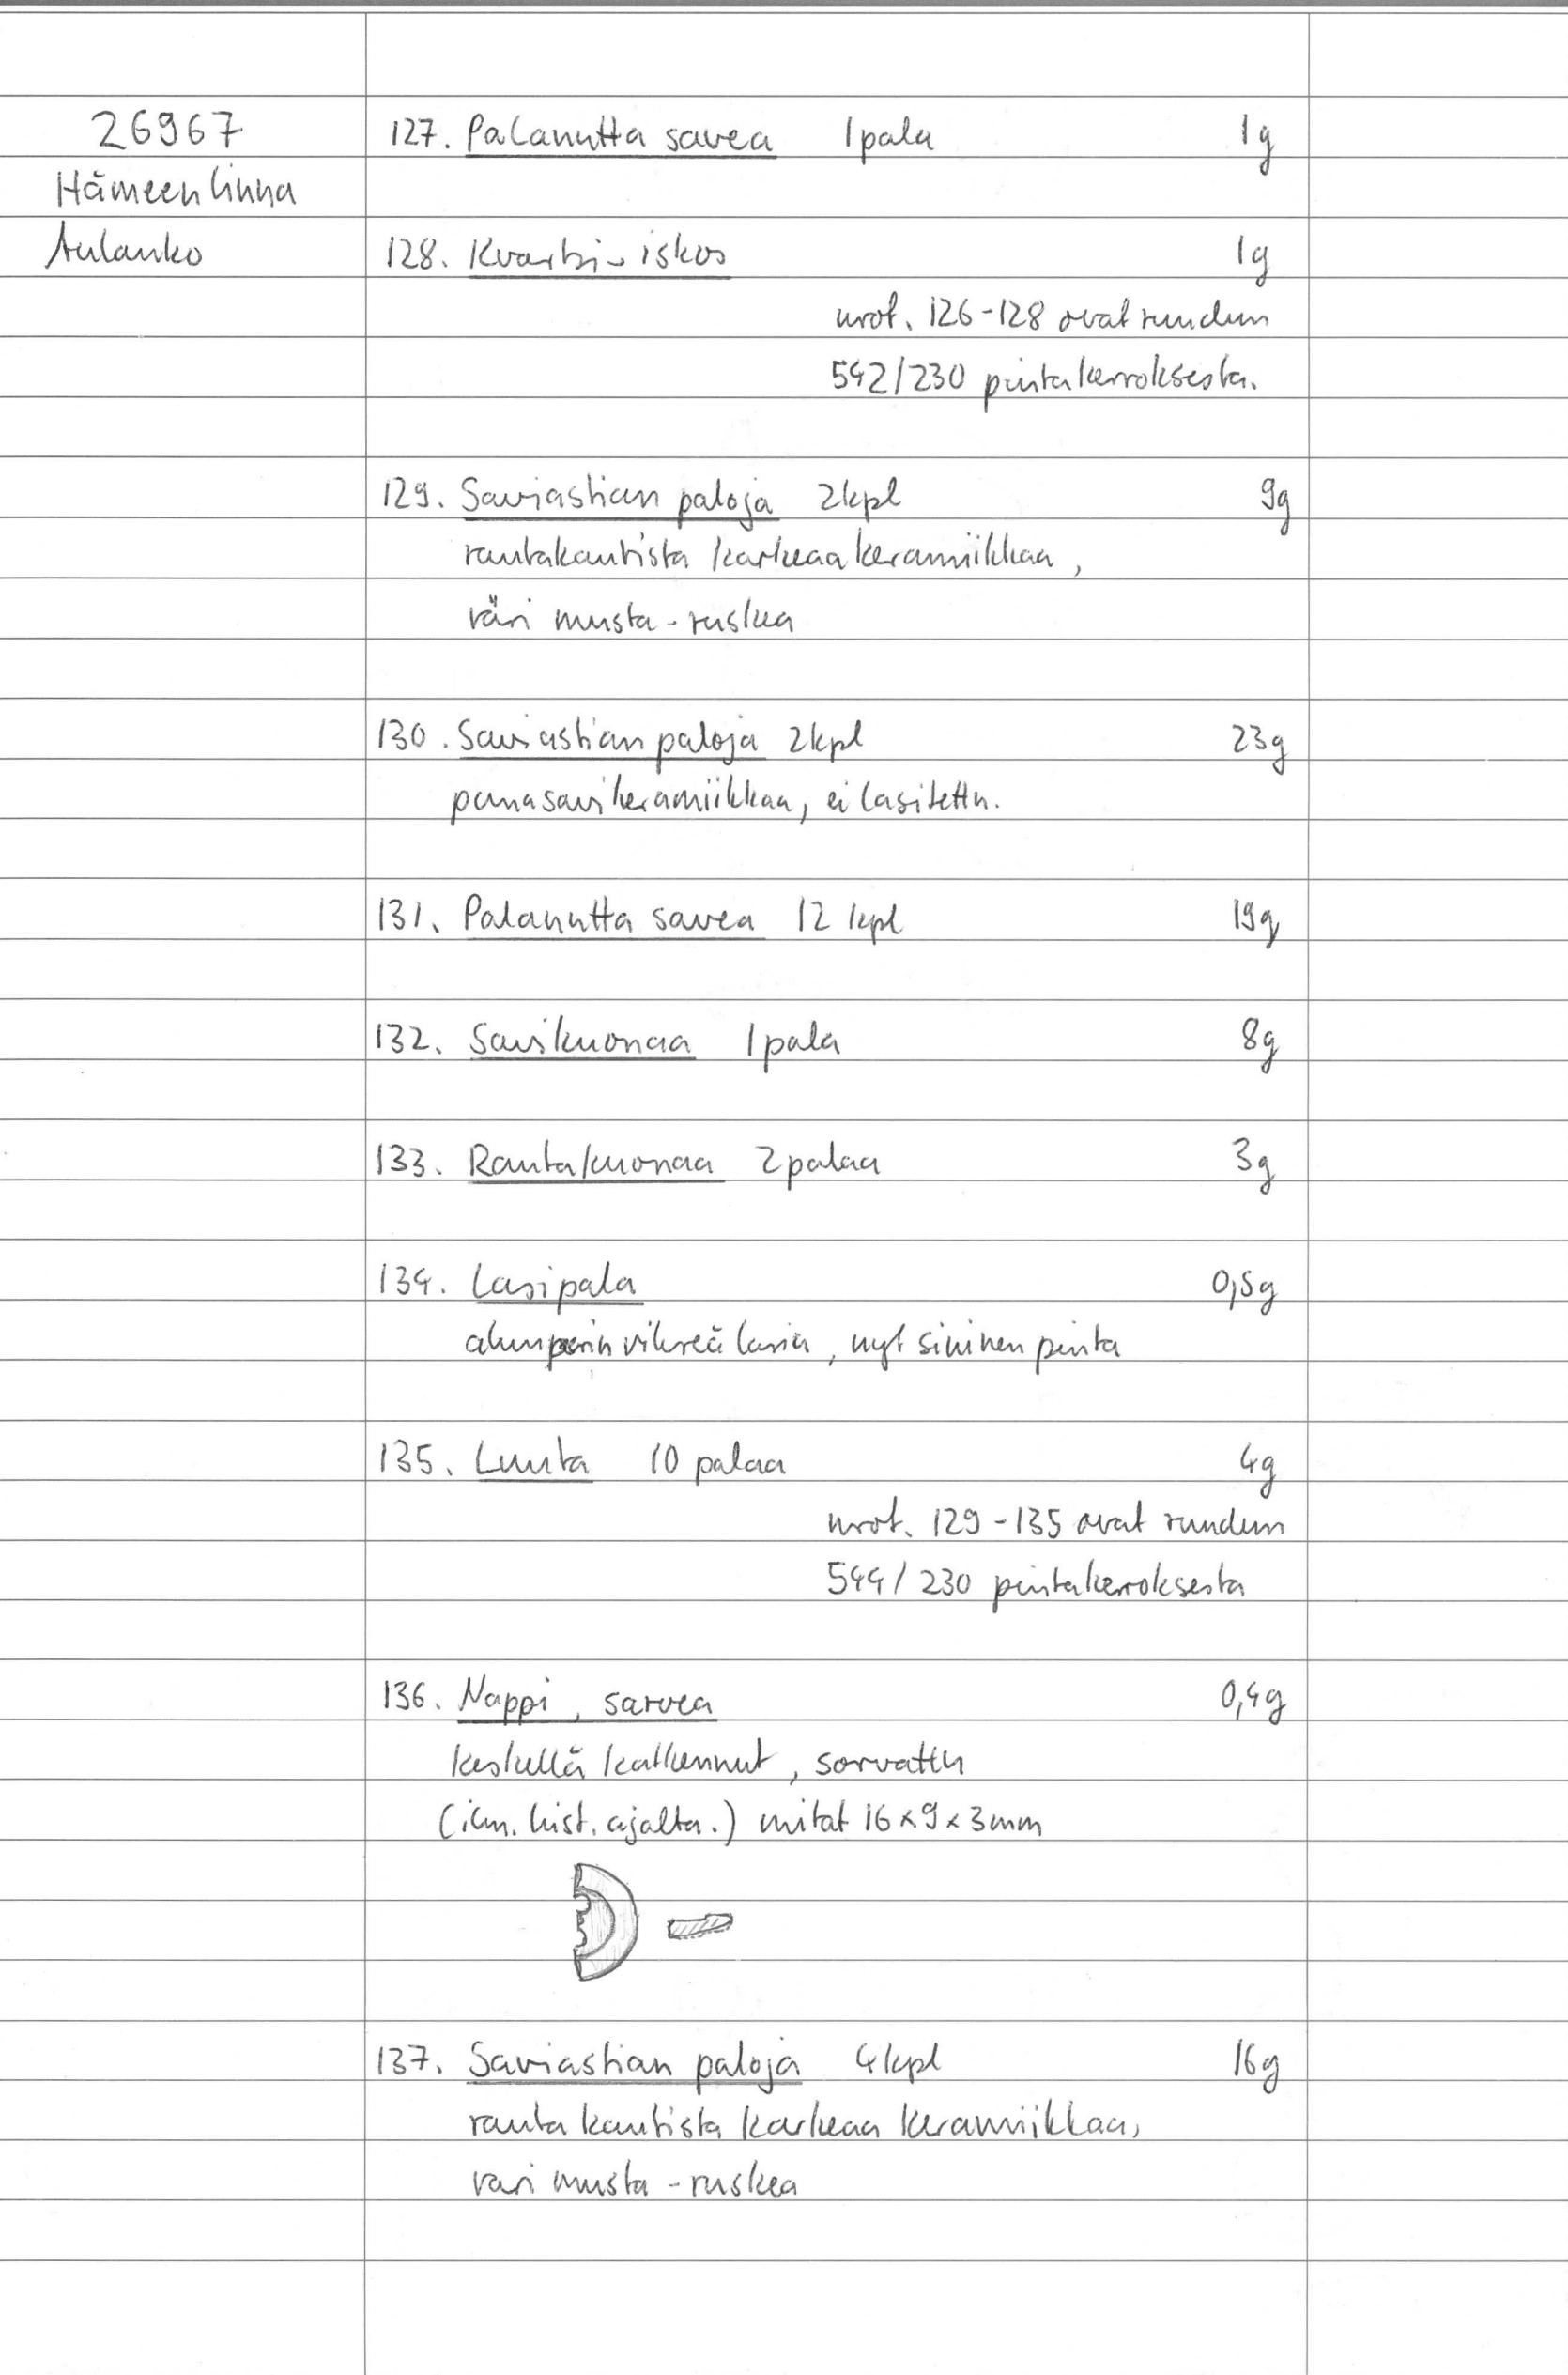 26967
Hämeenlinna
Aulanko
127. Palanutta savea 1 pala 1g
128. Kvartsi-iskos 1g
nrot. 126-128 ovat ruudun
542/230 pintakerroksesta.
129. Saviastian paloja 2kpl 9g
rautakautista karkeaa keramiikkaa,
väri musta-ruskea
130. Saviastian paloja 2kpl 23g
punasavikeramiikkaa, ei lasitettu.
131. Palanutta savea 12 kpl 19g
132. Savikuonaa 1 pala 8g
133. Rautakuonaa 2 palaa 3g
134. Lasipala 0,5g
alunperin vihreä lasia, nyt sininen pinta
135. Luuta 10 palaa 4g
nrot. 129-135 ovat ruudun
544/230 pintakerroksesta
136. Nappi, sarvea 0,4g
keskellä katkennut, sorvattu
(ilm. hist. ajalta.) mitat 16x9x3mm
137. Saviastian paloja 4kpl 16g
rautakautista karkeaa keramiikkaa,
vari musta-ruskea